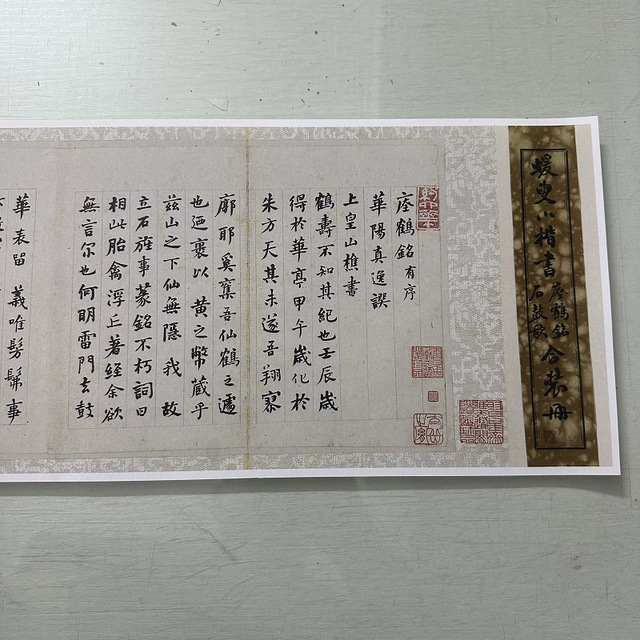 蝯叟小楷書瘞鶴銘石鼓歌合裝冊
瘞鶴銘有序
華陽真逸譔
上皇山樵書
鶴壽不知其紀也壬辰歲
得於華亭甲午歲化於
朱方天其未遂吾翔寥
廓耶奚棄吾仙鶴之遽
也迺裹以黃之幣藏乎
茲山之下仙無隱我故
立石旌事篆銘不朽詞曰
相此胎禽浮丘著經余欲
無言尔也何明雷門去鼓
華表留 義唯髣髴事